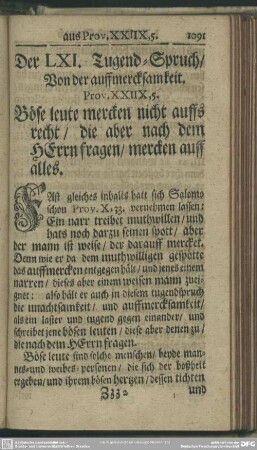 aus Prov. XXIIX, 5. 1091
Der LXI. Tugend-Spruch/
Von der auffmercksamkeit.
Prov. XXIIX, 5.
Böse leute mercken nicht auffs
recht/ die aber nach dem
HErrn fragen/ mercken auff
alles.
FAst gleiches inhalts hatt sich Salomo
schon Prov. X. 23. vernehmen lassen:
Ein narr treibet muthwillen/ und
hats noch darzu seinen spott/ aber
der mann ist weise/ der darauff mercket.
Denn wie er da dem muthwilligen gespötte
das auffmercken entgegen hält/ und jenes einem
narren/ dieses aber einem weisen mann zueig-
net: also hält er auch in diesem tugendspruch
die unachtsamkeit/ und auffmercksamkeit/
als ein laster und tugend gegen einander/ und
schreibet jene bösen leuten/ diese aber denen zu/
die nach dem HErrn fragen.
Böse leute sind solche menschen/ beyde man-
nes- und weibes-personen/ die sich der boßheit
ergeben/ und ihrem bösen hertzen/ dessen tichten
Zzz 2 und